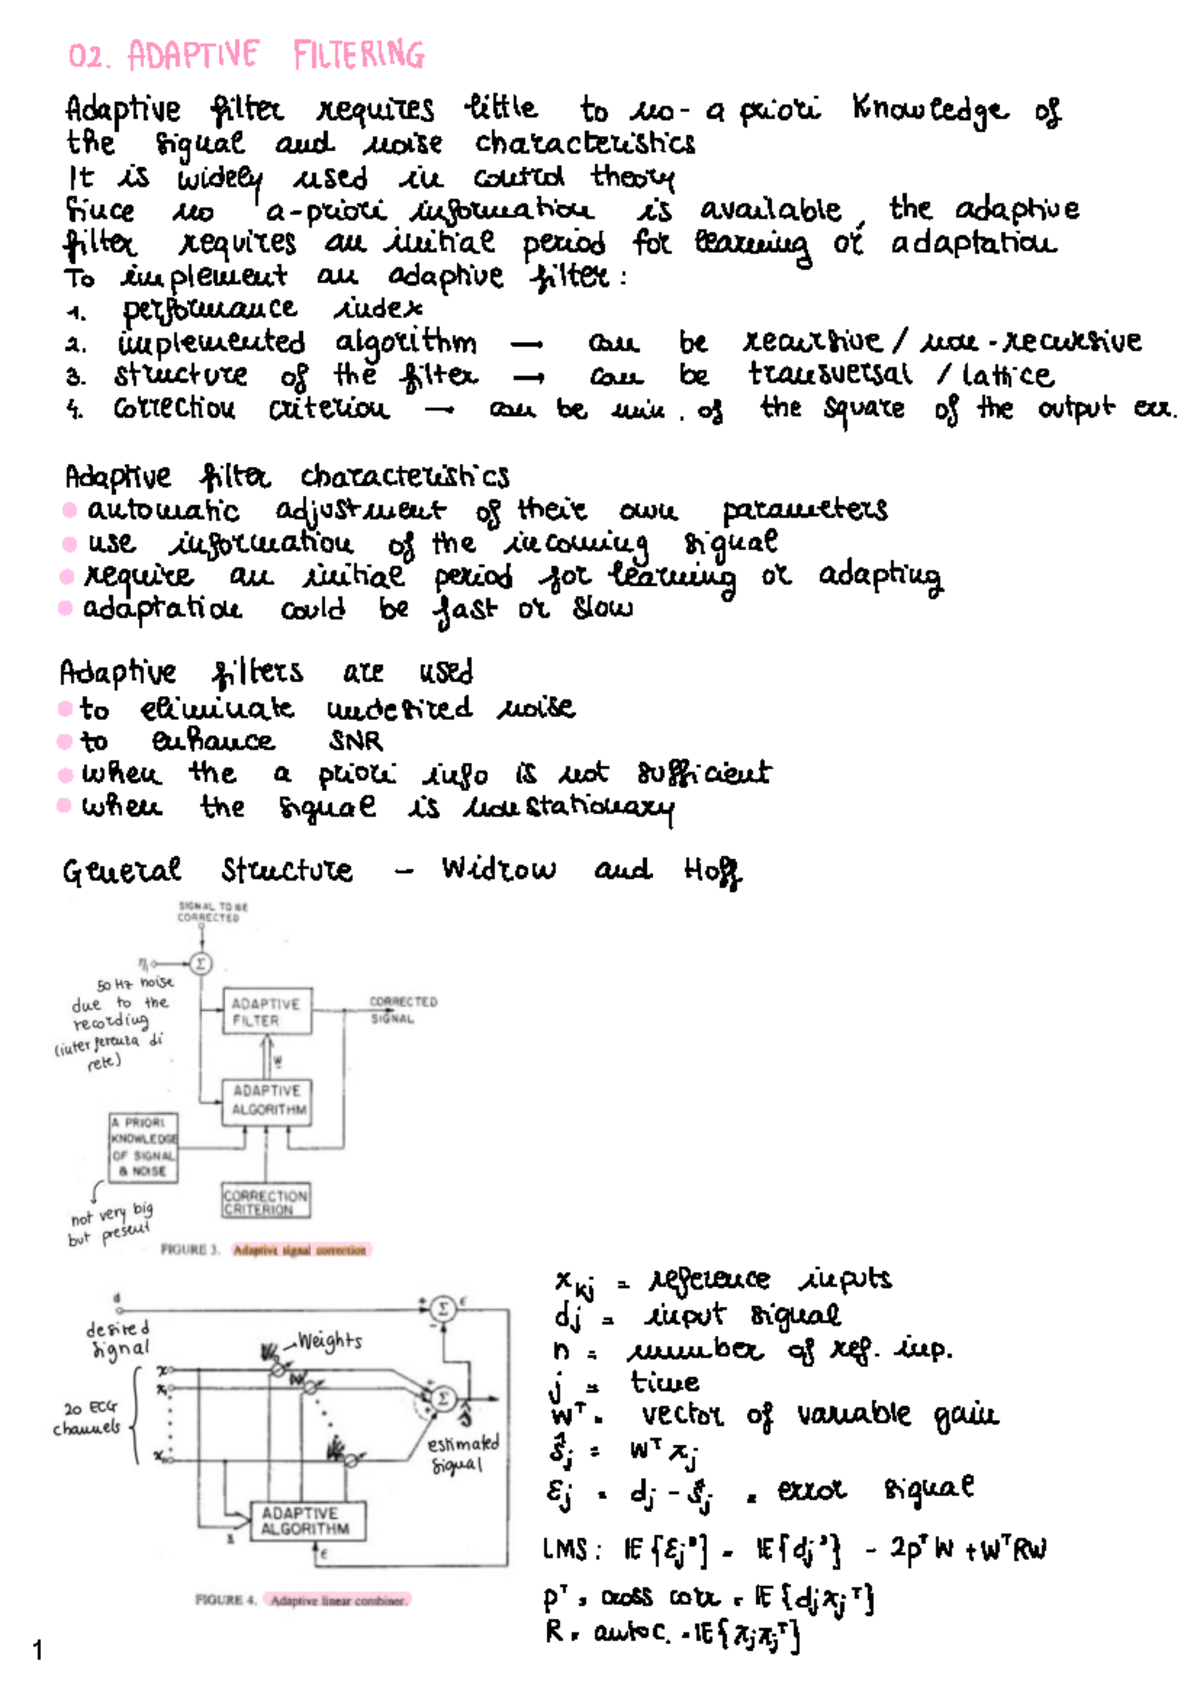 02. ADAPTIVE FILTERING
Adaptive filter requires little to no - a priori knowledge of
the signal and noise characteristics
It is widely used in control theory
Since no a-priori information is available, the adaptive
filter requires an initial period for learning or adaptation
To implement an adaptive filter:
1. performance index
2. implemented algorithm → can be recursive / non-recursive
3. structure of the filter → can be transversal / lattice
4. correction criterion → can be min. of the square of the output err.
Adaptive filter characteristics
• automatic adjustment of their own parameters
• use information of the incoming signal
• require an initial period for learning or adapting
• adaptation could be fast or slow
Adaptive filters are used
• to eliminate undesired noise
• to enhance SNR
• when the a priori info is not sufficient
• when the signal is nonstationary
General Structure - Widrow and Hoff
SIGNAL TO BE
CORRECTED
η
Σ
50 Hz noise
due to the
recording
(interferenza di
rete)
ADAPTIVE
FILTER
CORRECTED
SIGNAL
W
ADAPTIVE
ALGORITHM
A PRIORI
KNOWLEDGE
OF SIGNAL
& NOISE
not very big
but present
CORRECTION
CRITERION
FIGURE 3. Adaptive signal correction
d
desired
signal
+ Σ ε
-
Weights
20 ECG
channels
x
x₁
xₙ
Σ
ŝ
estimated
signal
ADAPTIVE
ALGORITHM
x
ε
FIGURE 4. Adaptive linear combiner.
xkj = reference inputs
dj = input signal
n = number of ref. inp.
j = time
Wᵀ = vector of variable gain
ŝj = Wᵀxj
εj = dj - ŝj = error signal
LMS: IE{εj²} = IE{dj²} - 2pᵀW + WᵀRW
pᵀ = cross corr = IE{djxjᵀ}
R = autoc. = IE{xjxjᵀ}
1